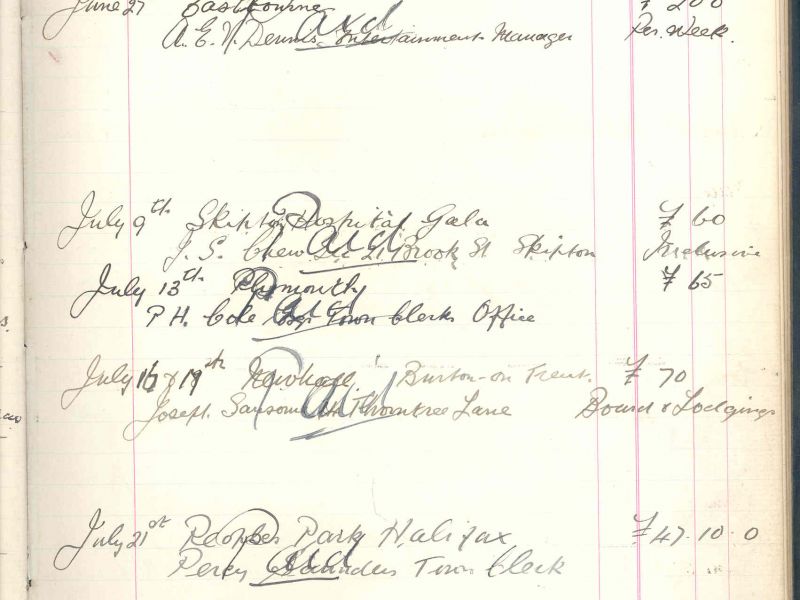 June 27 Eastbourne £ 200
A. E. V. Dennis Entertainment Manager Per. Week.
Paid
July 9th Skipton Hospital Gala £ 60
J. S. Chew Sec 21 Brook St Skipton Inclusive
Paid
July 13th Plymouth £ 65
P H. Cole Town Clerks Office
Paid
July 18 & 19th Newhall Burton-on Trent. £ 70
Joseph Sansom Thorntree Lane Board & Lodgings
Paid
July 21st Peoples Park Halifax £47.10.0
Percy Saunders Town Clerk
Paid